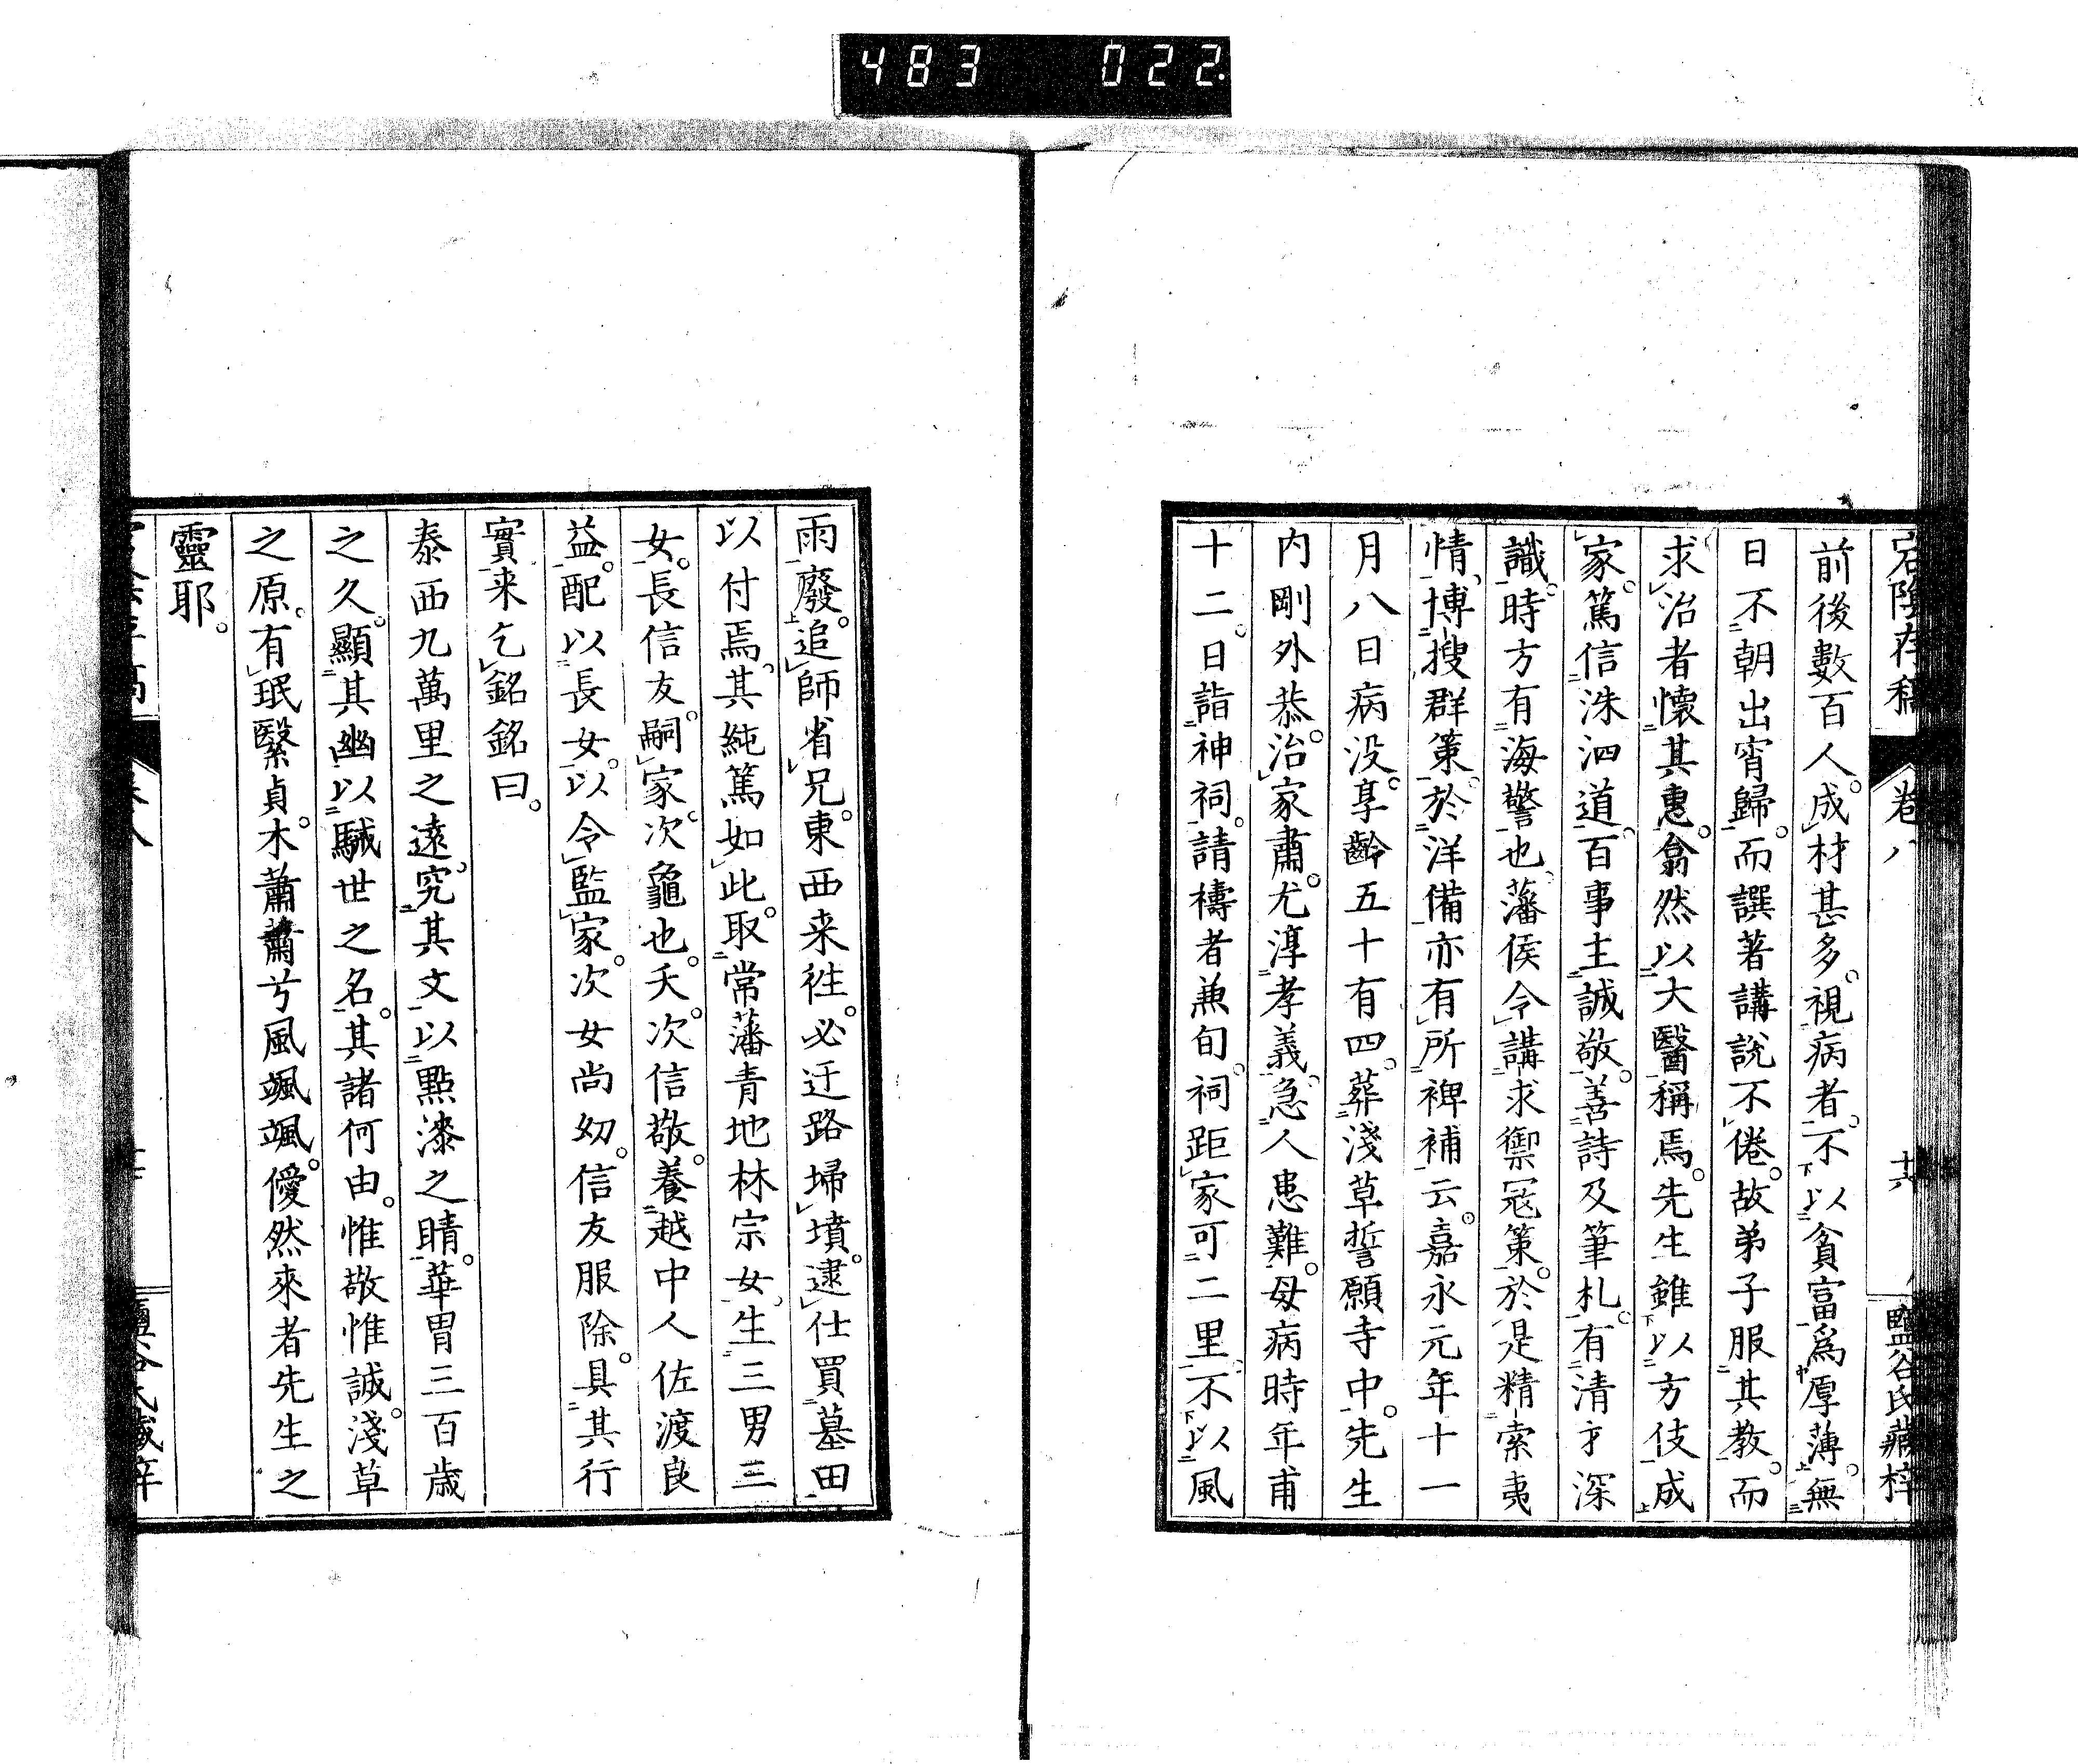 483 022
宕陰存稿 卷八 十六 鹽谷氏藏梓
前後數百人。成材甚多。視病者。不以貧富爲厚薄。無
日不朝出宵歸。而譔著講說不倦。故弟子服其教。而
求治者懷其惠。翕然以大醫稱焉。先生雖以方伎成
家。篤信洙泗道。百事主誠敬。善詩及筆札。有清才深
識。時方有海警也。藩侯令講求禦冦策。於是精索夷
情。博搜群策。於洋備亦有所裨補云。嘉永元年十一
月八日病没。享齡五十有四。葬淺草誓願寺中。先生
内剛外恭。治家肅。尤淳孝義。急人患難。母病時年甫
十二。日詣神祠。請禱者兼旬。祠距家可二里。不以風
雨廢。追師省兄。東西来徃。必迂路埽墳。逮仕買墓田
以付焉。其純篤如此。取常藩青地林宗女。生三男三
女。長信友。嗣家。次龜也。夭。次信敬。養越中人佐渡良
益。配以長女。以令監家。次女尚幼。信友服除。具其行
實来乞銘銘曰。
泰西九萬里之遠。究其文以點漆之睛。華胄三百歳
之久。顯其幽以駴世之名。其諸何由。惟敬惟誠。淺草
之原。有珉繄貞。木蕭蕭兮風颯颯。僾然來者先生之
靈耶。